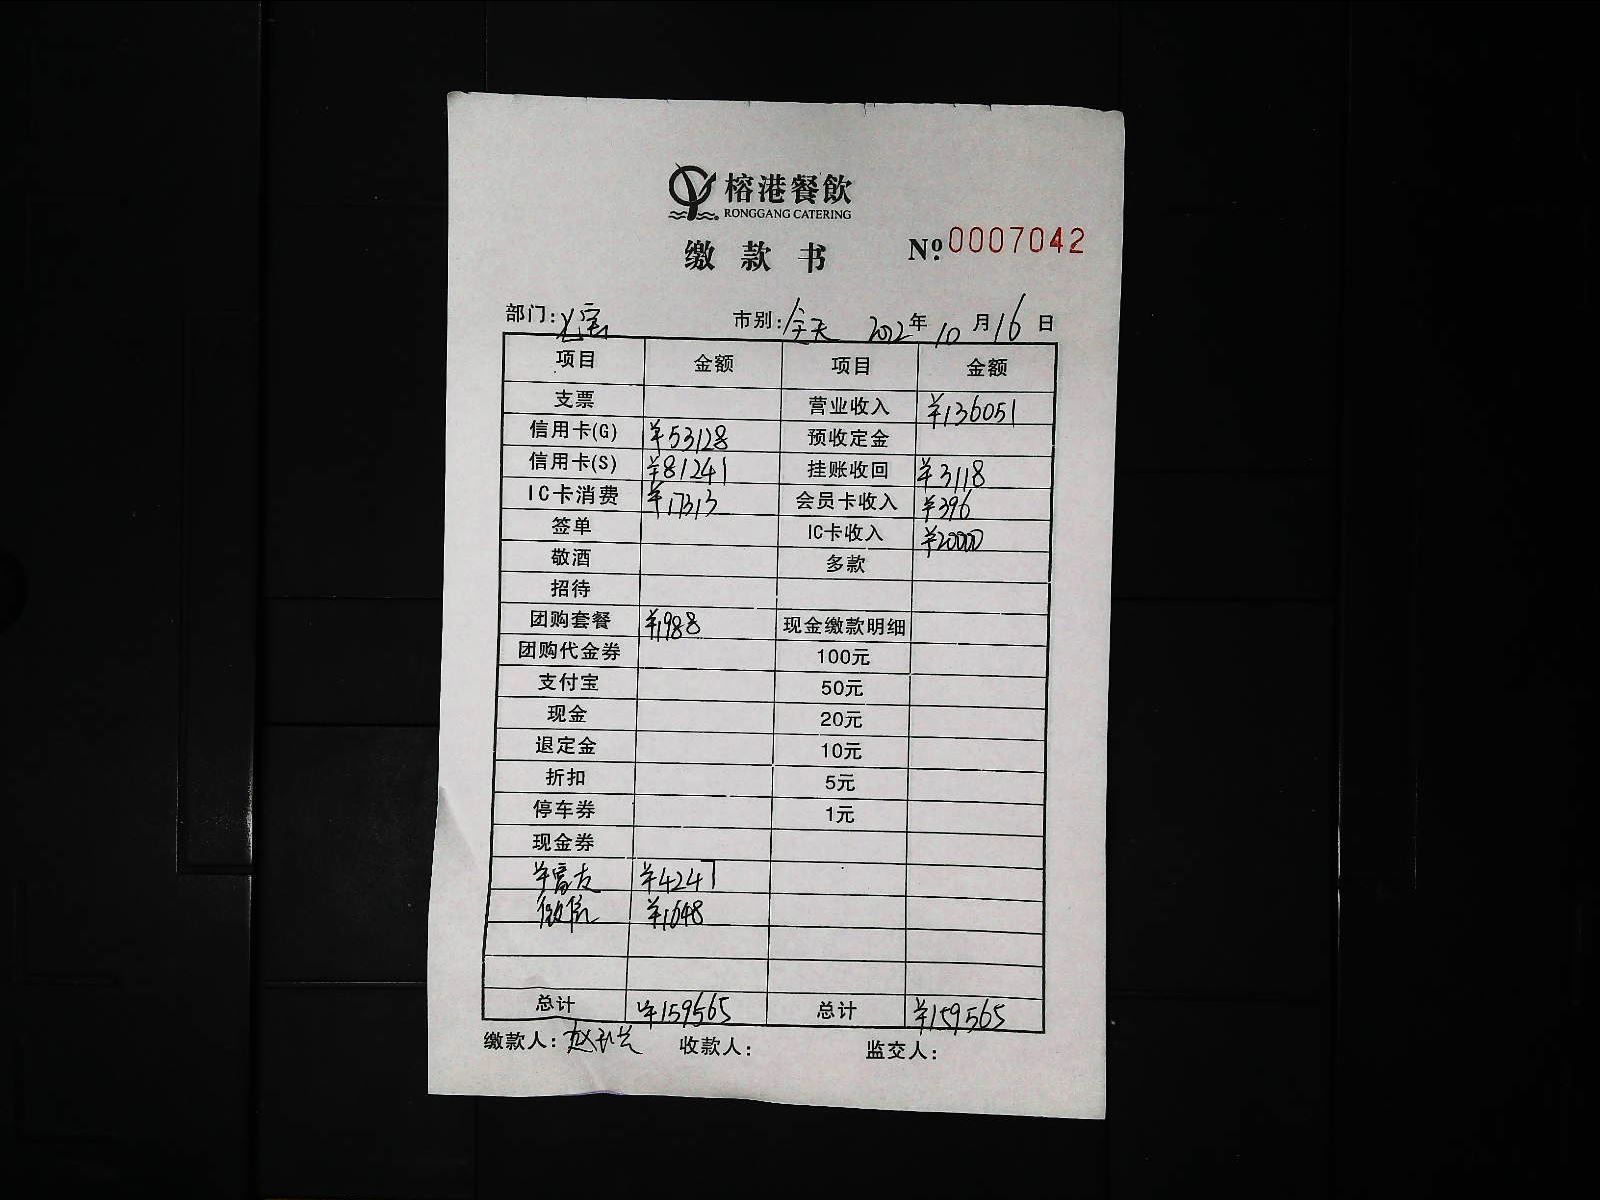 榕港餐飲
RONGGANG CATERING
缴款书 №:0007042
部门: 市别:全天 2012年10月16日
项目 金额 项目 金额
支票 营业收入 ¥136051
信用卡(G) ¥53128 预收定金
信用卡(S) ¥81241 挂账收回 ¥3118
IC卡消费 ¥17313 会员卡收入 ¥396
签单 IC卡收入 ¥20000
敬酒 多款
招待
团购套餐 ¥1988 现金缴款明细
团购代金券 100元
支付宝 50元
现金 20元
退定金 10元
折扣 5元
停车券 1元
现金券
¥4247
微信 ¥1648
总计 ¥159565 总计 ¥159565
缴款人: 收款人: 监交人: